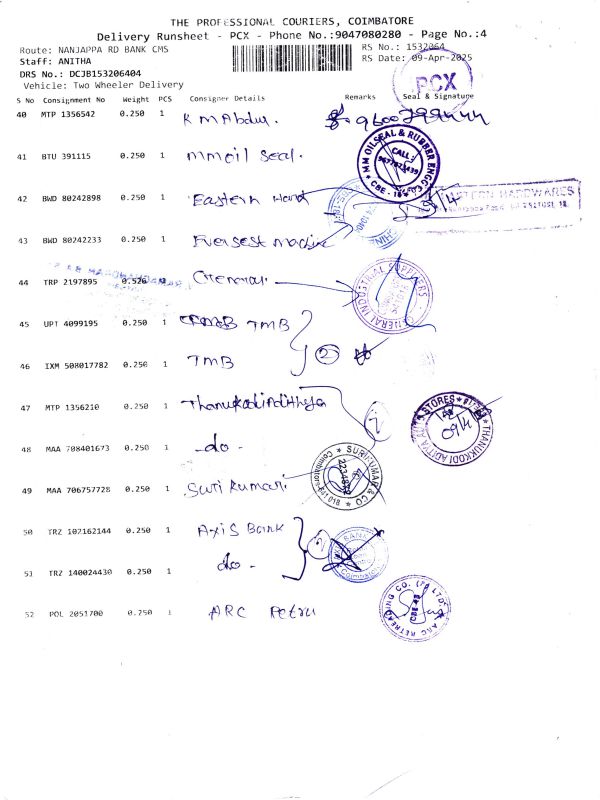 THE PROFESSIONAL COURIERS, COIMBATORE
Delivery Runsheet - PCX - Phone No.:9047080280 - Page No.:4
Route: NANJAPPA RD BANK CMS
RS No.: 1532064
Staff: ANITHA
RS Date: 09-Apr-2025
DRS No.: DCJB153206404
PCX
Vehicle: Two Wheeler Delivery
S No Consignment No Weight PCS Consigner Details Remarks Seal & Signature
40 MTP 1356542 0.250 1 K M Abdul.
MM OILSEAL & RUBBER ENGG
CALL:
CBE
41 BTU 391115 0.250 1 mm oil seal.
42 BWD 80242898 0.250 1 Eastern Hard
HARDWARES
43 BWD 80242233 0.250 1 Everest machine
44 TRP 2197895 0.526
GENERAL INDUSTRIAL SUPPLIERS
45 UPT 4099195 0.250 1 TMB
2
46 IXM 508017782 0.250 1 TMB
47 MTP 1356210 0.250 1
2
THANUKKODI ADITYA AUTO STORES
09/4
48 MAA 708401673 0.250 1 -do-
SURI KUMAR & CO
Coimbatore-641 018
49 MAA 706757728 0.250 1 Suri Kumari.
50 TRZ 102162144 0.250 1 Axis Bank
BANK
Coimbatore
51 TRZ 140024430 0.250 1 do-
52 POL 2051700 0.250 1 ARC Petru
ARC RETREADING CO. (P) LTD.
CBE-43